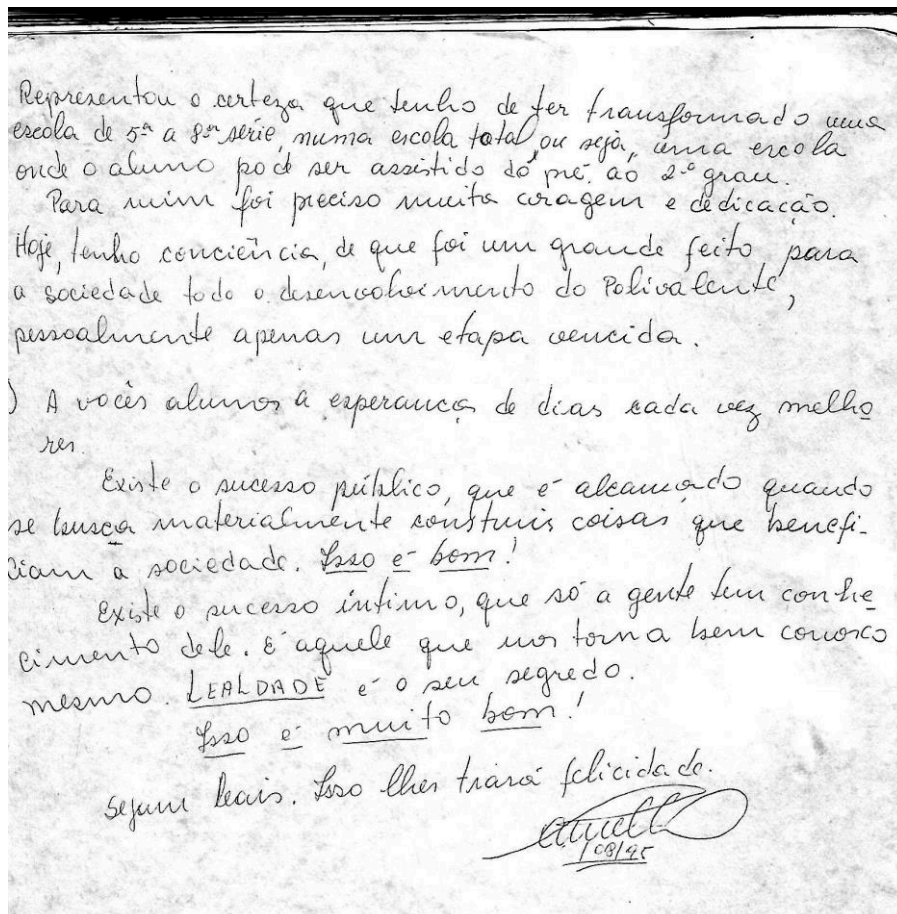 Representou o certeza que tenho de ter transformado uma
escola de 5ª a 8ª série, numa escola total, ou seja, uma escola
onde o aluno pode ser assistido do pré. ao 2º grau.
Para mim foi preciso muita coragem e dedicação.
Hoje, tenho conciência, de que foi um grande feito, para
a sociedade todo o desenvolvimento do Polivalente,
pessoalmente apenas um etapa vencida.
) A vocês alunos a esperança de dias cada vez melho
res.
Existe o sucesso público, que é alcançado quando
se busca materialmente construir coisas que benefi-
ciam a sociedade. Isso é bom!
Existe o sucesso íntimo, que só a gente tem conhe
cimento dele. É aquele que nos torna bem conosco
mesmo. LEALDADE é o seu segredo.
Isso é muito bom!
Sejam leais. Isso lhes trará felicidade.
/08/95